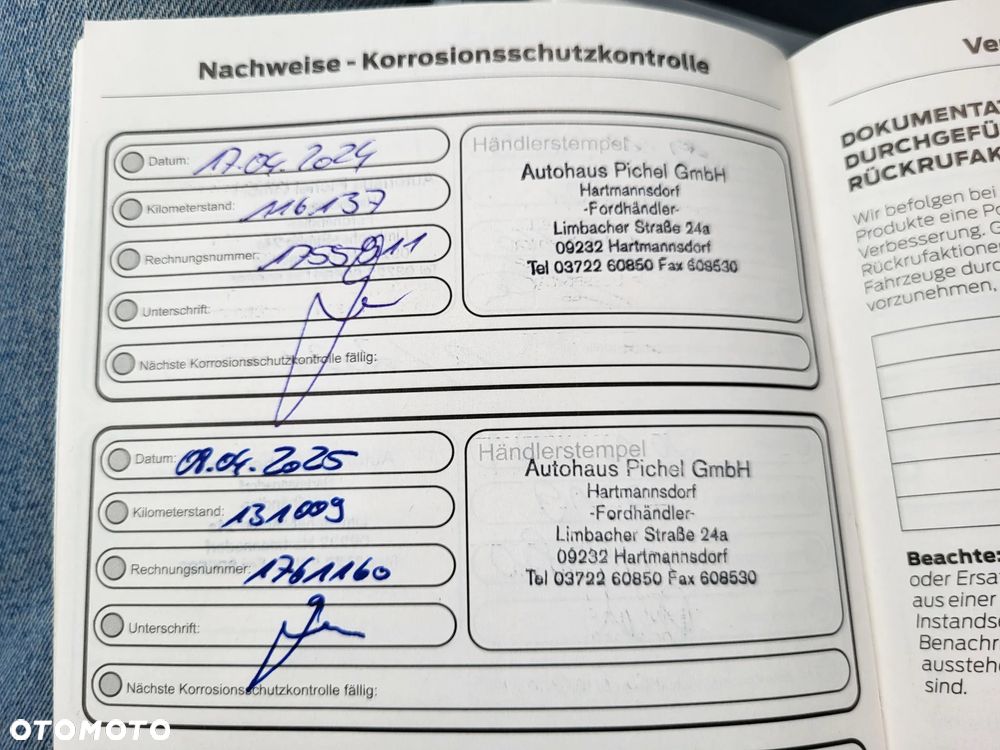 Nachweise - Korrosionsschutzkontrolle
Datum: 17.04.2024
Kilometerstand: 116137
Rechnungsnummer:
Unterschrift:
Nächste Korrosionsschutzkontrolle fällig:
Händlerstempel
Autohaus Pichel GmbH
Hartmannsdorf
-Fordhändler-
Limbacher Straße 24a
09232 Hartmannsdorf
Tel 03722 60850 Fax 608530
Datum: 09.04.2025
Kilometerstand: 131009
Rechnungsnummer: 1761160
Unterschrift:
Nächste Korrosionsschutzkontrolle fällig:
Händlerstempel
Autohaus Pichel GmbH
Hartmannsdorf
-Fordhändler-
Limbacher Straße 24a
09232 Hartmannsdorf
Tel 03722 60850 Fax 608530
Ve
DOKUMENTA
DURCHGEFÜ
RÜCKRUFAK
Wir befolgen bei
Produkte eine Po
Verbesserung. G
Rückrufaktione
Fahrzeuge durc
vorzunehmen,
Beachte:
oder Ersa
aus einer
Instands
Benachr
ausstehe
sind.
OTOMOTO